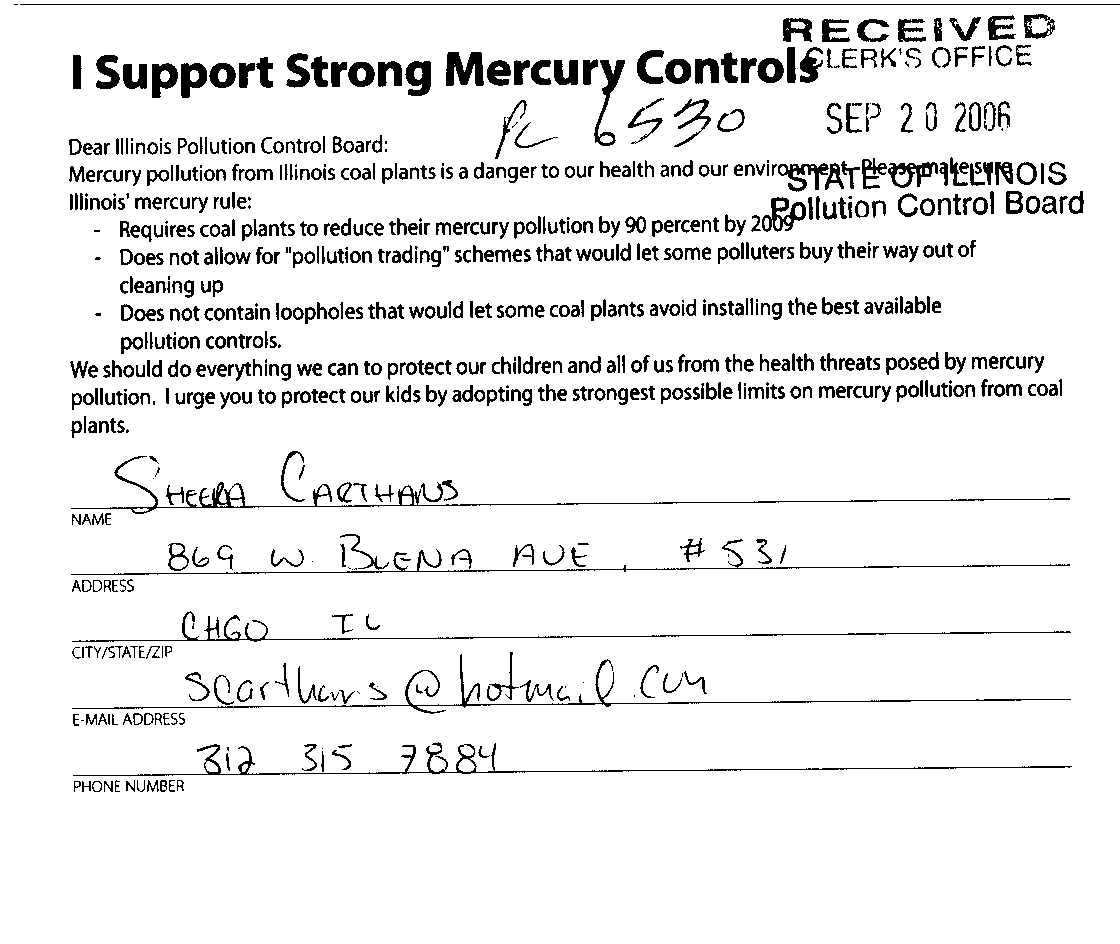 RECEIVED
CLERK'S OFFICE
I Support Strong Mercury Controls
PC 6530
SEP 20 2006
Dear Illinois Pollution Control Board:
Mercury pollution from Illinois coal plants is a danger to our health and our environment. Please make sure
STATE OF ILLINOIS
Illinois' mercury rule:
Pollution Control Board
- Requires coal plants to reduce their mercury pollution by 90 percent by 2009
- Does not allow for "pollution trading" schemes that would let some polluters buy their way out of
cleaning up
- Does not contain loopholes that would let some coal plants avoid installing the best available
pollution controls.
We should do everything we can to protect our children and all of us from the health threats posed by mercury
pollution. I urge you to protect our kids by adopting the strongest possible limits on mercury pollution from coal
plants.
SHEERA CARTHANS
NAME
869 W. BUENA AVE, #531
ADDRESS
CHGO IL
CITY/STATE/ZIP
scarthans@hotmail.com
E-MAIL ADDRESS
312 315 7884
PHONE NUMBER